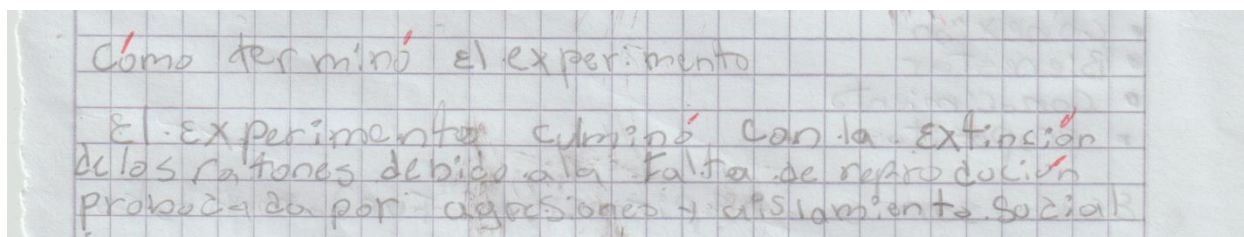 Cómo terminó El experimento
El experimento culminó con la Extinción
de los ratones debido a la Falta de reprodución
probocada por agreciones y aislamiento Social